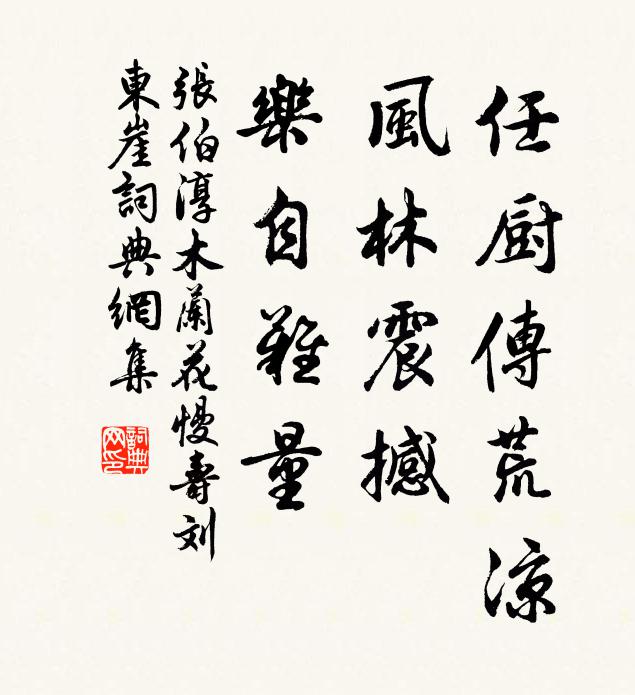 任厨傳荒涼
風林震撼
樂自難量
張伯淳木蘭花慢壽刘
東崖詞典網集
詞典网印